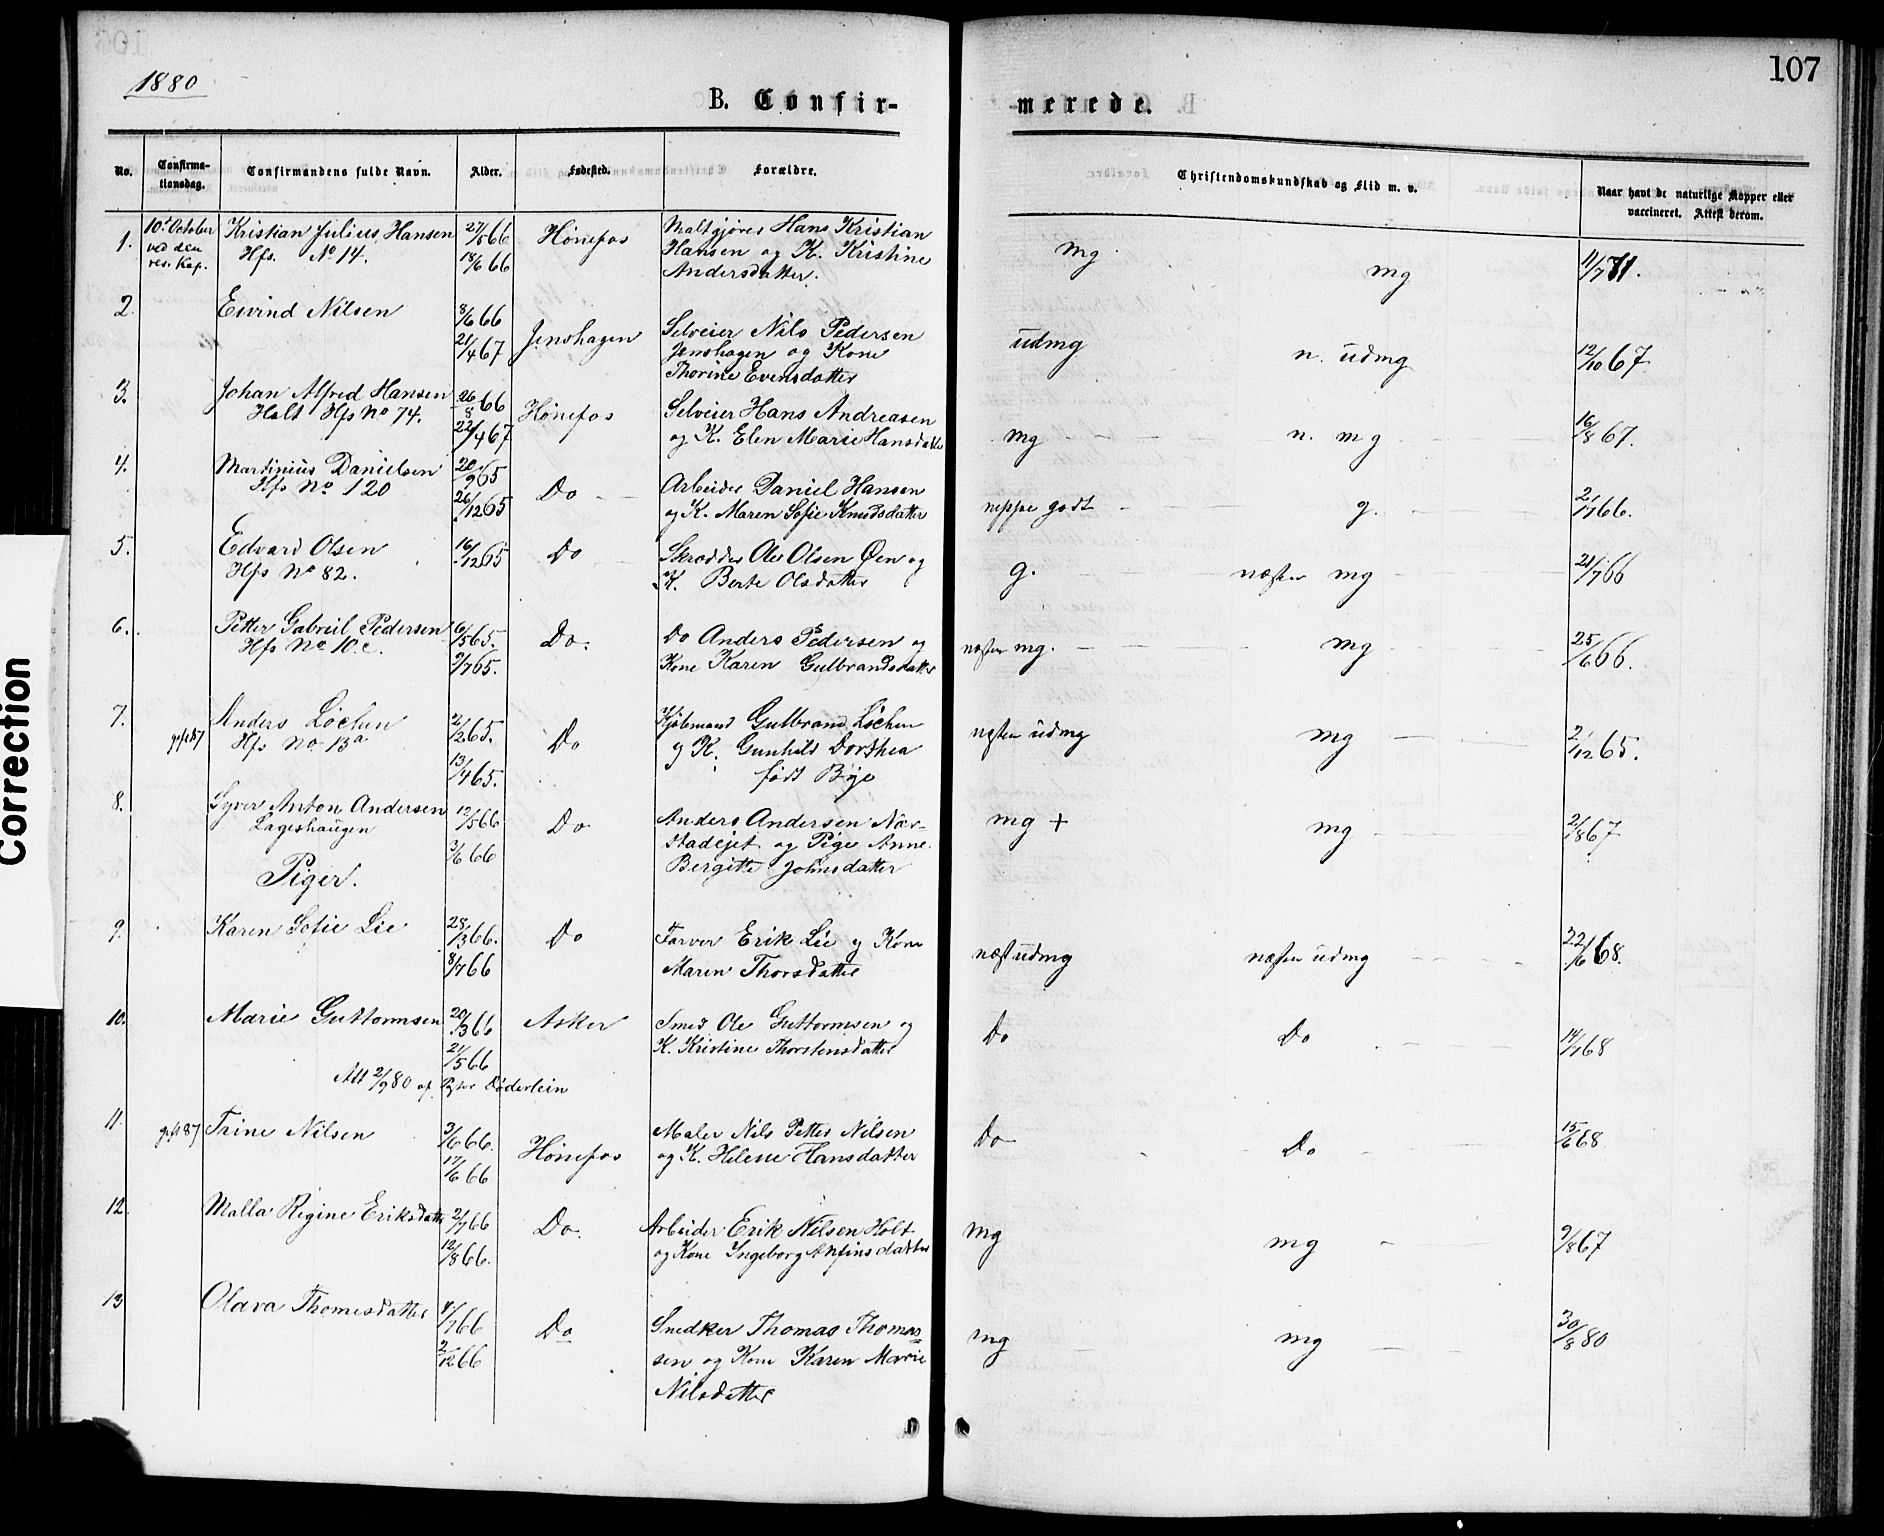 107
1880
B. Confir-
merede.
No.
Confirma-
tionsdag.
Confirmandens fulde Navn.
Alder.
Fødested.
Forældre.
Christendomskundskab og Flid m. v.
Naar havt de naturlige Kopper eller
vaccineret. Attest derom.
1. 10de October Kristian Julius Hansen 27/5 66 Hønefos
ved den Hfs. No 14. 18/6 66
res. Kap.
Hans Kristian
Hansen og K. Kristine
Andersdatter.
mg mg 11/7 71.
2. Eivind Nilsen 8/6 66
21/4 67 Jenshagen
Selveier Nils Pedersen
Jenshagen og Kone
Thorine Evensdatter
udmg n. udmg 12/10 67
3. Johan Alfred Hansen 26/8 66 Hønefos
Holt Hfs No 74. 22/4 67
Selveier Hans Andreasen
og K. Elen Marie Hansdatter
mg n. mg 16/8 67.
4. Martinius Danielsen 20/9 65 Do
Hfs No 120 26/12 65
Arbeider Daniel Hansen
og K. Maren Sofie Knudsdatter
neppe godt g. 2/7 66.
5. Edvard Olsen 16/12 65 Do
Hfs No 82.
Skrædder Ole Olsen Øen og
K. Berte Olsdatter
g. næsten mg 21/7 66
6. Petter Gabriel Pedersen 6/5 65. Do.
Hfs No 10.c. 9/7 65.
Do Anders Pedersen og
Kone Karen Gulbrandsdatter
næsten mg. mg 25/6 66.
7. Anders Løchen 2/2 65. Do
Hfs No 13a 13/4 65.
Kjøbmand Gulbrand Løchen
og K. Gunhild Dorthea
født Bye
næsten udmg mg 2/12 65.
8. Syver Anton Andersen 12/5 66 Do
Lageshaugen 3/6 66
Anders Andersen Nær-
stadejet og Pige Anne
Bergitte Johnsdatter
mg + mg 2/8 67
Piger.
9. Karen Sofie Lie 28/3 66. Do
8/7 66
Farver Erik Lie og Kone
Maren Thorsdatter
næst udmg næsten udmg 22/6 68.
10. Marie Guttormsen 20/3 66 Asker
21/5 66
Smed Ole Guttormsen og
K. Kristine Thorstensdatter
Do Do 14/7 68
Att 2/9 80 af Pastor Døderlein
11. Trine Nilsen 3/6 66. Hønefos
17/6 66
Maler Nils Petter Nilsen
og K. Helene Hansdatter
Do Do 15/6 68
12. Malla Regine Eriksdatter 2/7 66 Do.
12/8 66.
Arbeider Erik Nilsen Holt
og Kone Ingeborg Anfinsdatter
mg mg 9/8 67
13 Olava Thomesdatter 4/7 66 Do
2/12 66
Snedker Thomas Thomas=
sen og Kone Karen Marie
Nilsdatter
mg mg 30/8 80
Correction